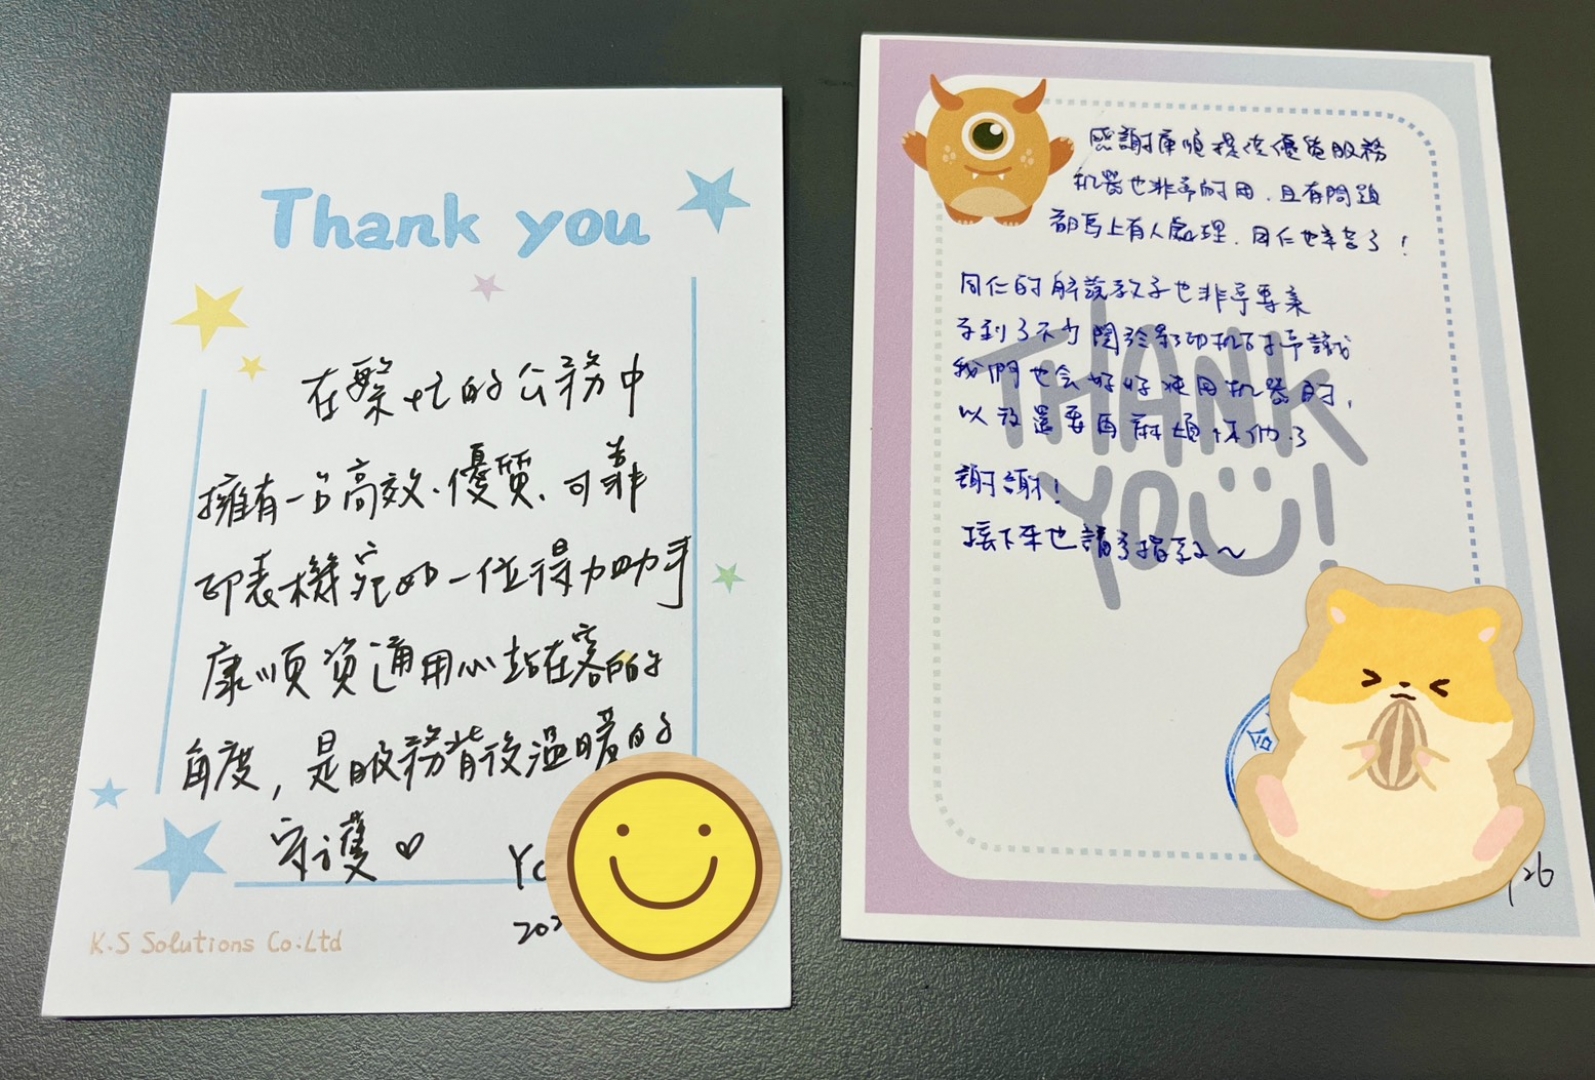 Thank you
在繁忙的公務中
擁有一台高效、優質、可靠
印表機宛如一位得力助手
康順資通用心站在客戶的
角度，是服務背後溫暖的
守護♡
K.S Solutions Co.Ltd
感謝康順提供優質服務
机器也非常好用，且有問題
都馬上有人處理，同仁也辛苦了！
同仁的解說教學也非常專業
學到了不少關於影印机的知識
我們也会好好使用机器的，
以後還要再麻煩你们了
謝謝！
接下來也請多指教～
THANK
YOU!
合
26